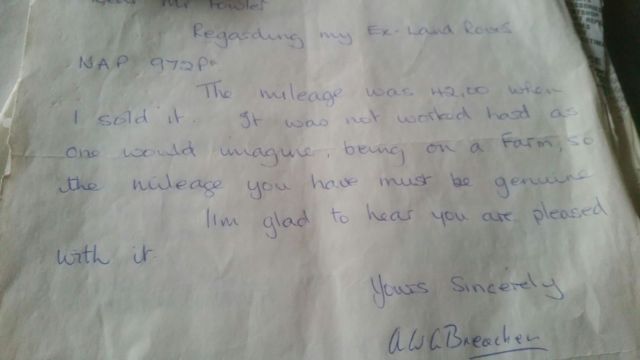 Dear Mr Fowler
Regarding my Ex-Land Rover
NAP 972P.
The mileage was 42,00 when
I sold it. It was not worked hard as
one would imagine, being on a Farm, so
the mileage you have must be genuine
I'm glad to hear you are pleased
with it.
Yours Sincerely